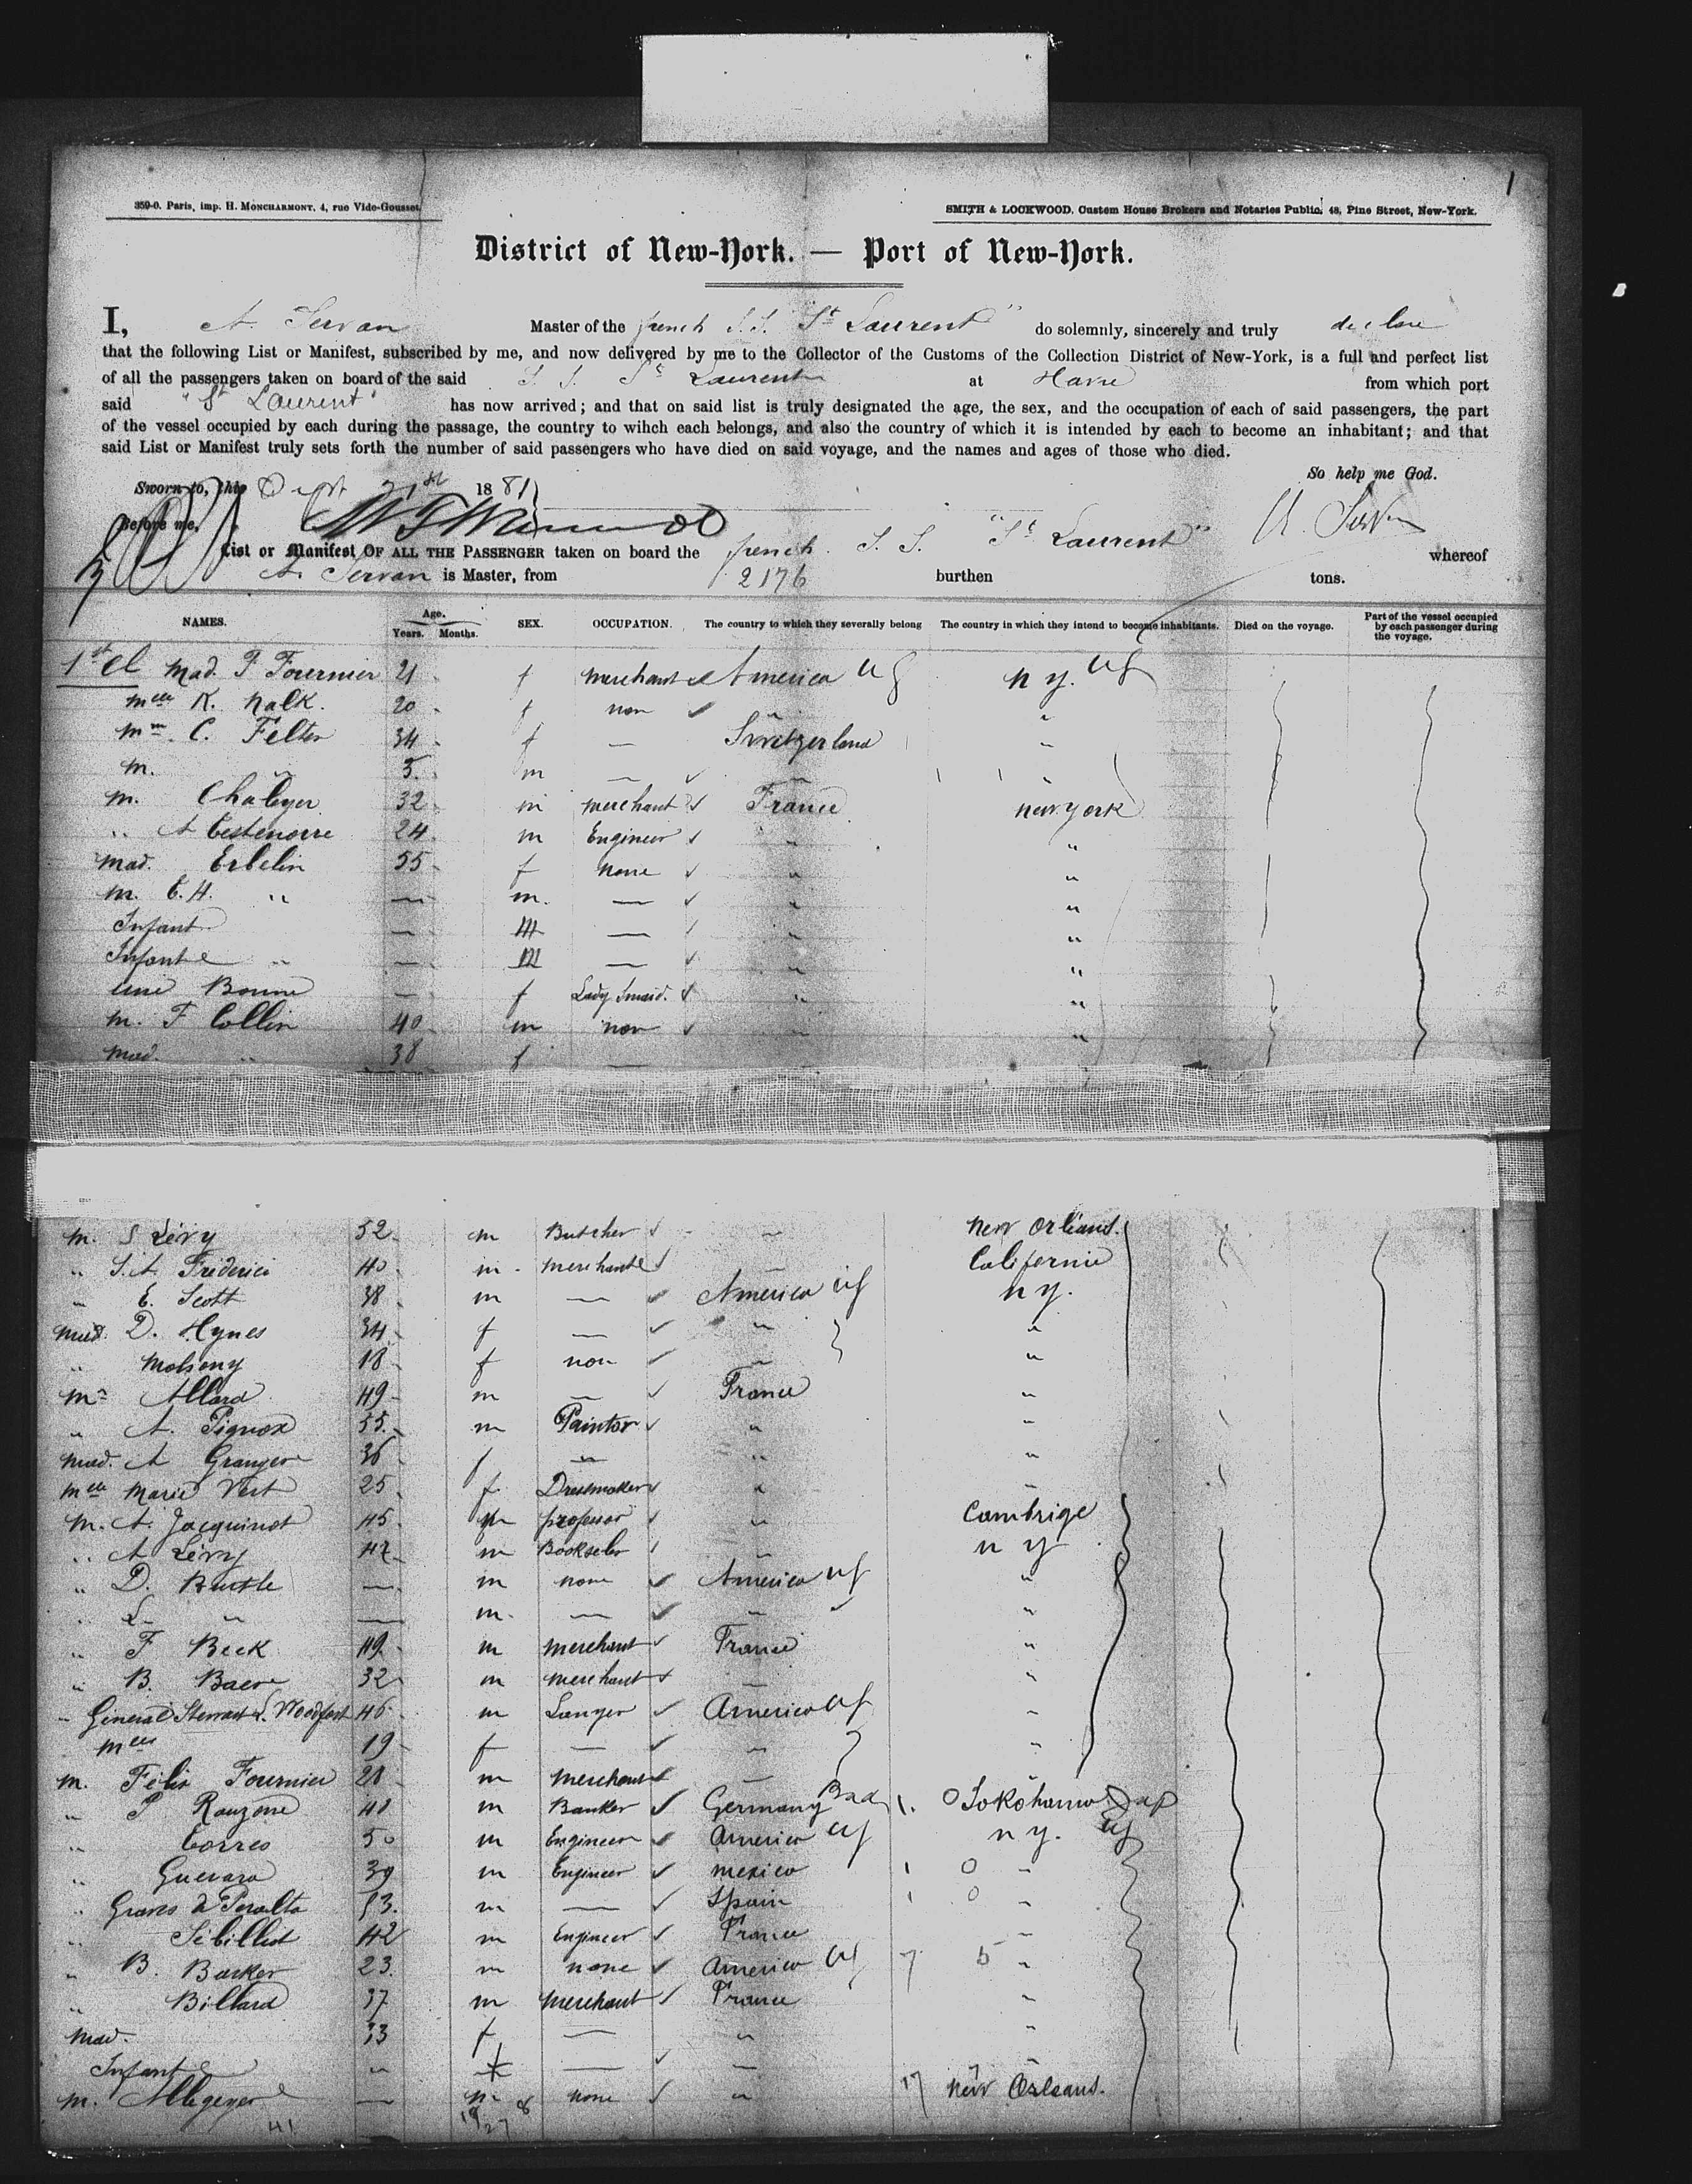 1
359-0. Paris, imp. H. MONCHARMONT. 4, rue Vide-Gousset.
SMITH & LOCKWOOD. Custom House Brokers and Notaries Public. 48, Pine Street, New-York.
District of New-York. — Port of New-York.
I, A. Servan Master of the french S.S. "St Laurent" do solemnly, sincerely and truly declare
that the following List or Manifest, subscribed by me, and now delivered by me to the Collector of the Customs of the Collection District of New-York, is a full and perfect list
of all the passengers taken on board of the said S. S. St Laurent at Havre from which port
said "St Laurent" has now arrived; and that on said list is truly designated the age, the sex, and the occupation of each of said passengers, the part
of the vessel occupied by each during the passage, the country to wihch each belongs, and also the country of which it is intended by each to become an inhabitant; and that
said List or Manifest truly sets forth the number of said passengers who have died on said voyage, and the names and ages of those who died.
So help me God.
Sworn to, this 21st 1881
Before me, A. Servan
List or Manifest OF ALL THE PASSENGER taken on board the french S. S. "St Laurent" whereof
A. Servan is Master, from 2176 burthen tons.
NAMES. Age. Years. Months. SEX. OCCUPATION. The country to which they severally belong The country in which they intend to become inhabitants. Died on the voyage. Part of the vessel occupied by each passenger during the voyage.
1st Cl Mad. F Fournier 21 f merchant America US n y. US
Mlle K. Nalk. 20 f non "
Mm C. Felter 34 f — Switzerland "
M. " 5. m — " "
M. Chaleyer 32 m merchant France new york
" A Testenoire 24 m Engineer " "
Mad. Erbelin 55 f none " "
M. E. H. " — m. — " "
Infant — m — " "
Infant " — m — " "
une Bonne — f Lady's maid. " "
M. F Collin 40 m non " "
Mad. " 38 f —
M. S Lévy 52 m Butcher " New Orleans.
" S. A. Frederici 40 m merchant " Californie
" E. Scott 38 m — America US n y.
Mad. D. Hynes 34 f — " "
" Molsony 18 f non " "
Mr Allard 49 m — France "
" A. Pignox 55 m Painter " "
Mad. A Granger 36 f " " "
Mlle Marie Vert 25 f. Dressmaker " "
M. A. Jacquinot 45 m professor " Cambrige
" A Lévy 42 m Bookseler " n y
" D. — m none America US "
" L " — m. — " "
" F Beck 49 m merchant France "
" B. Baer 32 m merchant " "
" General Stewart L. Woodford 46 m Lawyer America US "
Mlle 19 f — " "
M. Félix Fournier 28 m merchant " "
" P Rauzone 48 m Banker Germany Bad Yokohama Jap
" Torres 50 m Engineer America US n y. US
" Guevara 39 m Engineer mexico 1 0 "
" de Peralta 53. m — Spain 1 0 "
" Sibillot 42 m Engineer France "
" B. Barker 23. m none America US 7 5 "
" Billard 37 m merchant France "
Mad. 33 f — " "
Infant " — " "
M. Allgeyer — m none " 17 New Orleans.
41 19 27 8